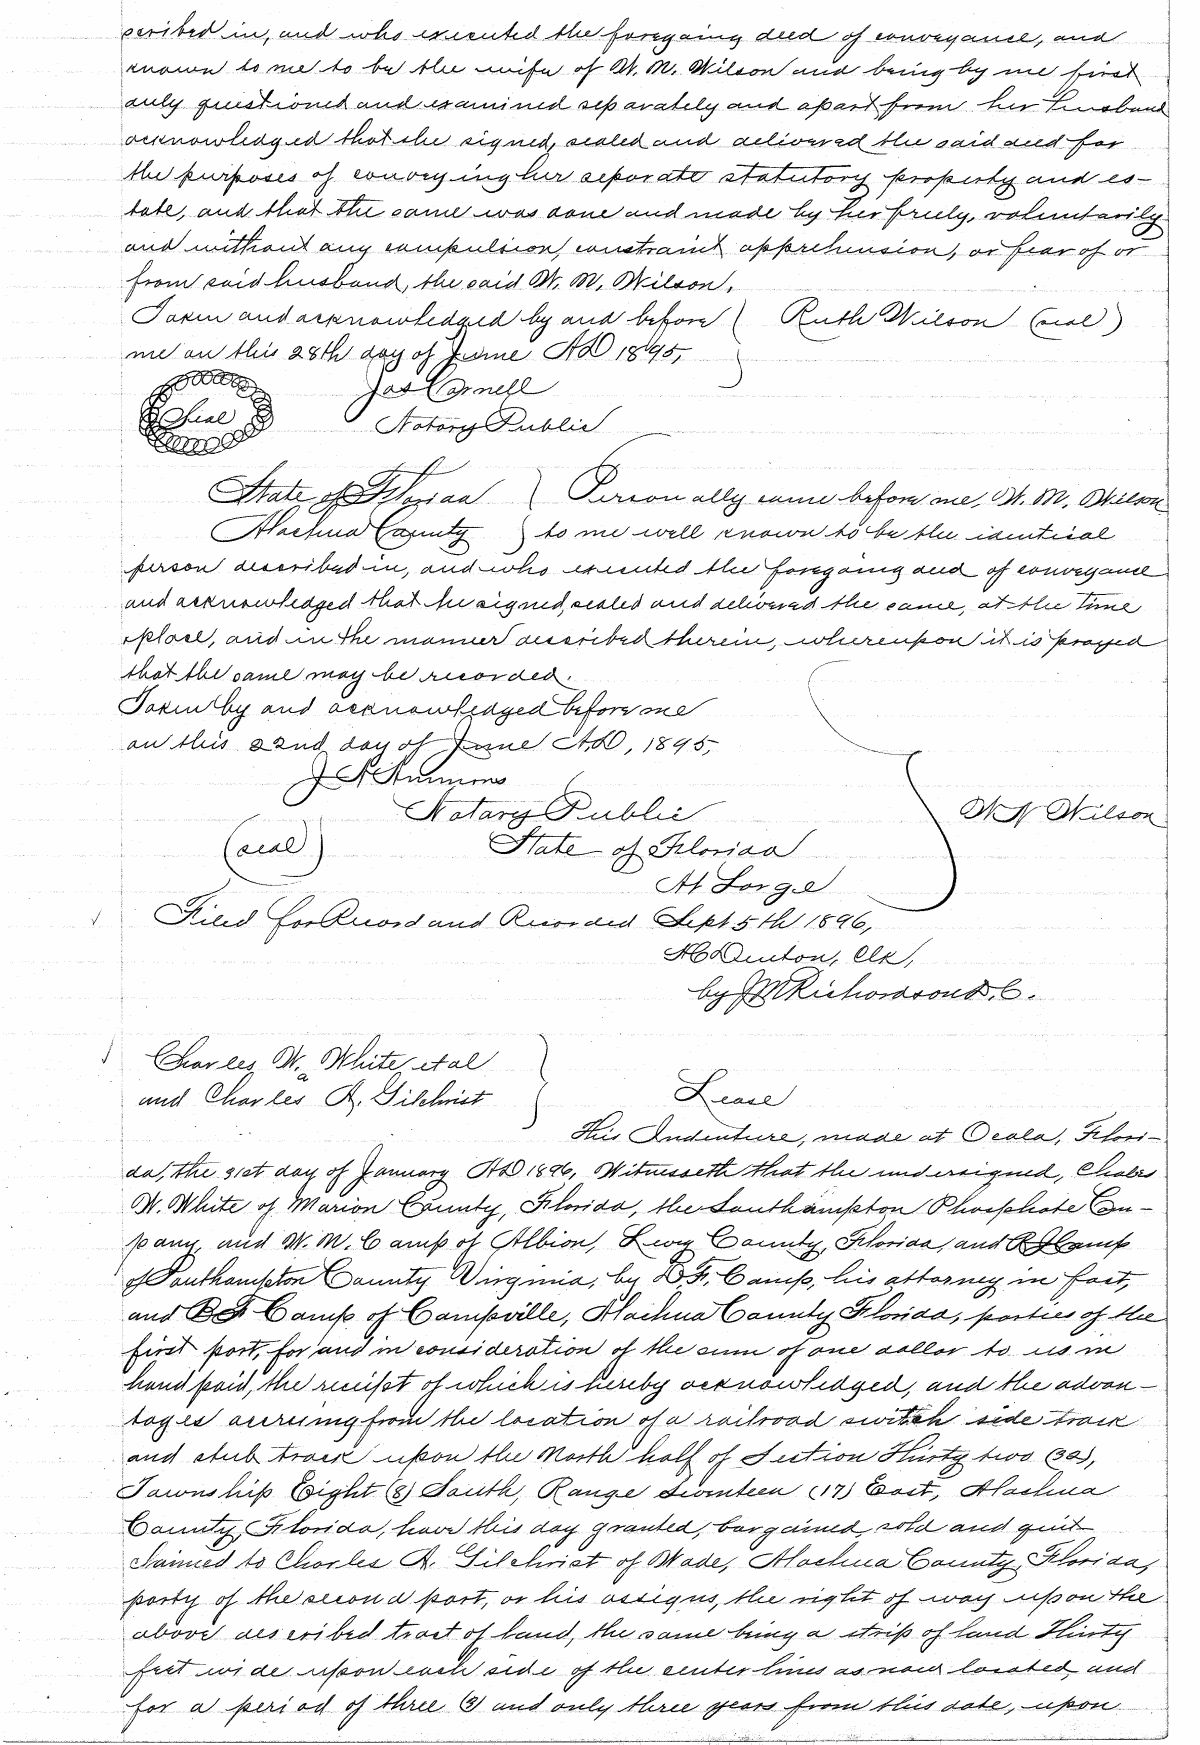 scribed in, and who executed the foregoing deed of conveyance, and
known to me to be the wife of W. M. Wilson and being by me first
duly questioned and examined separately and apart from her husband
acknowledged that she signed, sealed and delivered the said deed for
the purposes of conveying her separate statutory property and es-
tate, and that the same was done and made by her freely, voluntarily
and without any compulsion, constraint apprehension, or fear of or
from said husband, the said W. M. Wilson.
Taken and acknowledged by and before Ruth Wilson (seal)
me on this 28th day of June AD 1895,
Jas Cornell
Seal
Notary Public
State of Florida Personally came before me, W. M. Wilson
Alachua County to me well known to be the identical
person described in, and who executed the foregoing deed of conveyance
and acknowledged that he signed, sealed and delivered the same, at the time
place, and in the manner described therein, whereupon it is prayed
that the same may be recorded.
Taken by and acknowledged before me
on this 22nd day of June AD, 1895,
J A Ammons
Notary Public W M Wilson
(seal) State of Florida
At Large
Filed for Record and Recorded Sept 5th 1896,
H C Denton, Clk,
by J M Richardson D. C.
Charles W. White et al
a
and Charles A. Gilchrist Lease
This Indenture, made at Ocala, Flori-
da, the 31st day of January AD 1896, Witnesseth that the undersigned, Chales
W. White of Marion County, Florida, the Southampton Phosphate Com-
pany, and W. N. Camp of Albion, Levy County, Florida, and R J Camp
of Southampton County Virginia, by B. F. Camp, his attorney in fact,
and B F Camp of Campville, Alachua County Florida, parties of the
first part, for and in consideration of the sum of one dollar to us in
hand paid, the receipt of which is hereby acknowledged, and the advan-
tages accruing from the location of a railroad switch side track
and stub track upon the North half of Section Thirty two (32),
Township Eight (8) South, Range Seventeen (17) East, Alachua
County, Florida, have this day granted, bargained, sold and quit
claimed to Charles A. Gilchrist of Wade, Alachua County, Florida,
party of the second part, or his assigns, the right of way upon the
above described tract of land, the same being a strip of land Thirty
feet wide upon each side of the center lines as now located, and
for a period of three (3) and only three years from this date, upon